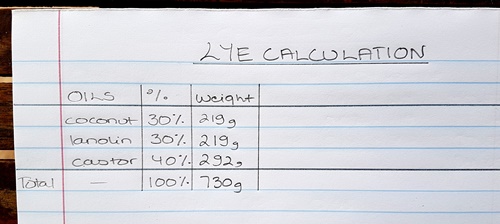 LYE CALCULATION
OILS % Weight
coconut 30% 219g
lanolin 30% 219g
castor 40% 292g
Total — 100% 730g